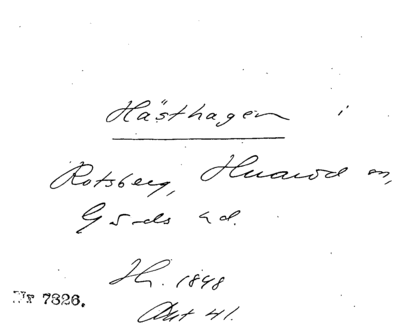 Hästhagen i
Rotsberg, Huaröd sn,
Gärds hd.
Hr. 1848
Akt 41.
Nr 7326.